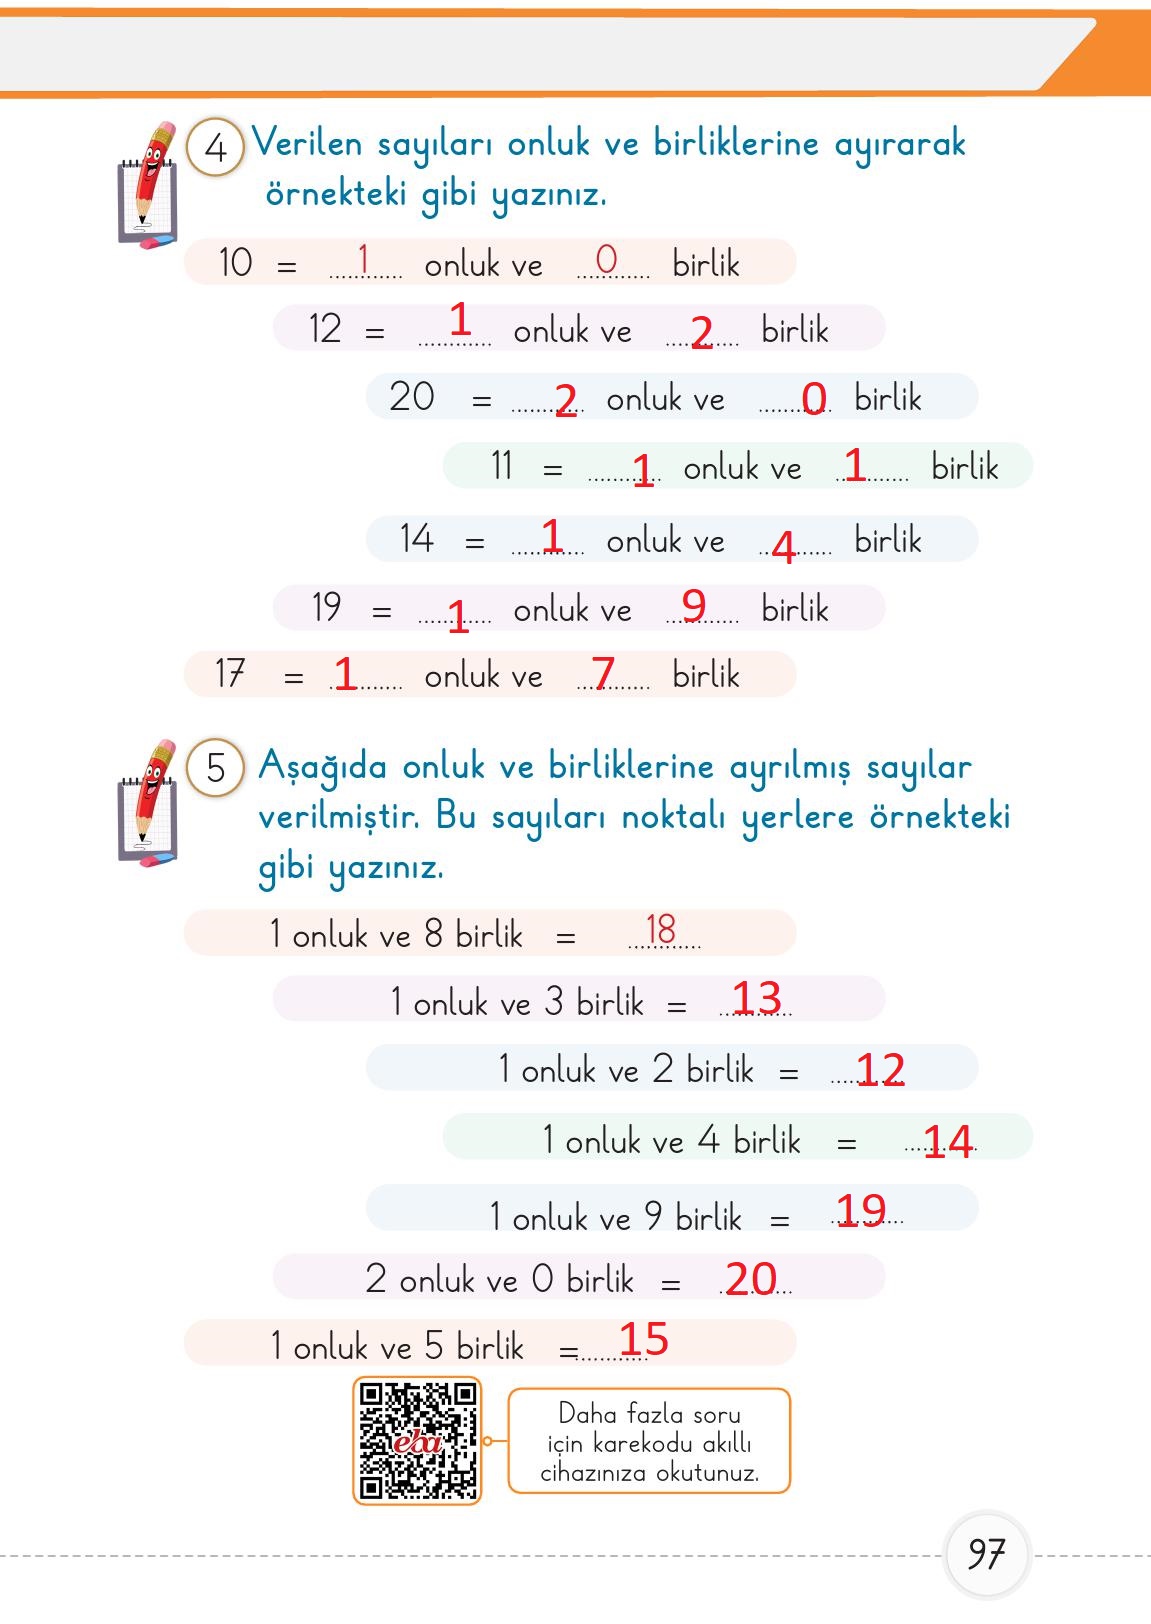 4 Verilen sayıları onluk ve birliklerine ayırarak
örnekteki gibi yazınız.
10 = 1 onluk ve 0 birlik
12 = 1 onluk ve 2 birlik
20 = 2 onluk ve 0 birlik
11 = 1 onluk ve 1 birlik
14 = 1 onluk ve 4 birlik
19 = 1 onluk ve 9 birlik
17 = 1 onluk ve 7 birlik
5 Aşağıda onluk ve birliklerine ayrılmış sayılar
verilmiştir. Bu sayıları noktalı yerlere örnekteki
gibi yazınız.
1 onluk ve 8 birlik = 18
1 onluk ve 3 birlik = 13
1 onluk ve 2 birlik = 12
1 onluk ve 4 birlik = 14
1 onluk ve 9 birlik = 19
2 onluk ve 0 birlik = 20
1 onluk ve 5 birlik = 15
eba
Daha fazla soru
için karekodu akıllı
cihazınıza okutunuz.
97